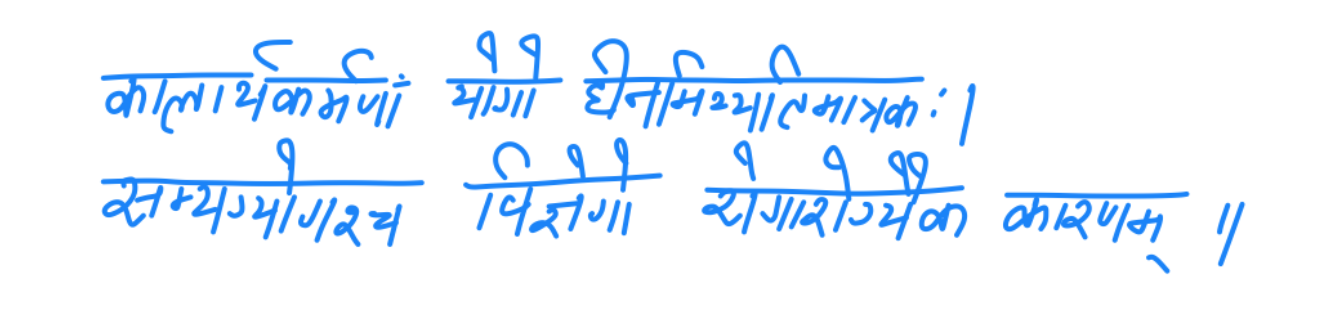 कालार्थकर्मणां योगो हीनमिथ्यातिमात्रकः।
सम्यग्योगश्च विज्ञेगो रोगारोग्यैक कारणम् ॥